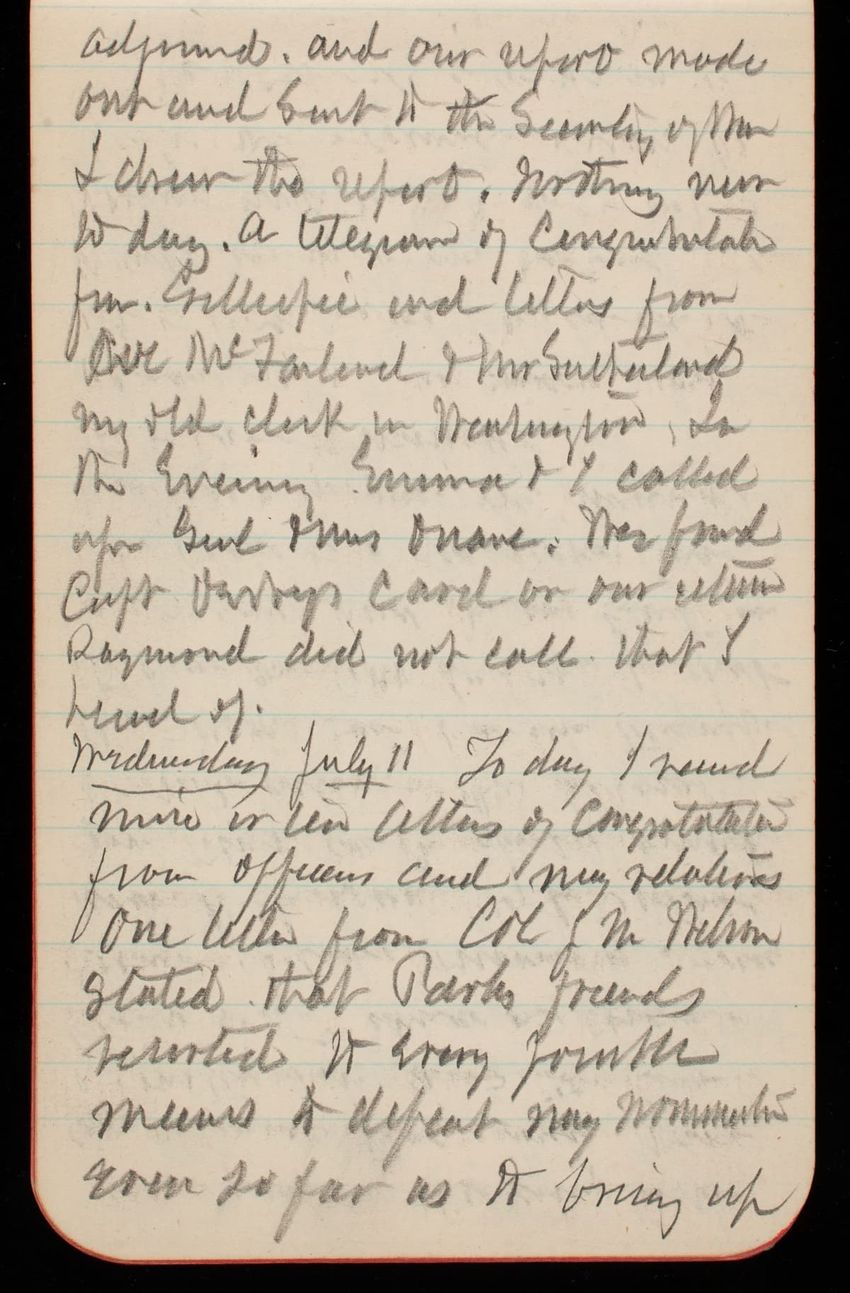 adjourned. and our report made
out and sent to the Secretary of War
I drew the report. Nothing new
to day. A telegram of Congratulati
from. Gillespie and letters from
Col McFarland & Mr Sutherland
my old clerk in Washington, In
the Evening Emma & I called
upon Genl & Mrs Duane. We found
Capt Card on our return
Raymond did not call that I
heard of.
Wednesday July 11 To day I recvd
more or less letters of Congratulation
from officers and my relations
One letter from Col J M Wilson
stated that Parks friends
resorted to every possible
means to defeat my Nomination
Even so far as to bring up